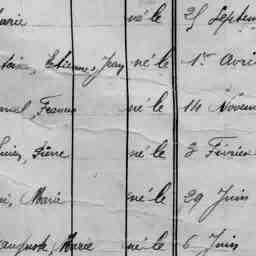 arie né le 25 Septem
toine, Etienne, Jean né le 1er Avri
nel, Francis né le 14 Novem
ouis, Pierre né le 3 Février
Marie né le 29 Juin
auguste, Marie né le 6 Juin